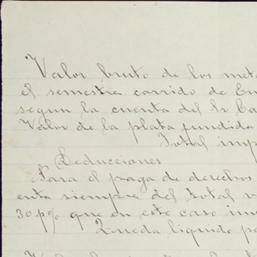 Valor bruto de los met
el semestre corrido de En
segun la cuenta del Sr Ca
Valor de la plata fundida
Total imp
Deducciones
Para el pago de derechos
enta siempre del total v
30 p% que en este caso im
Queda liquido pa